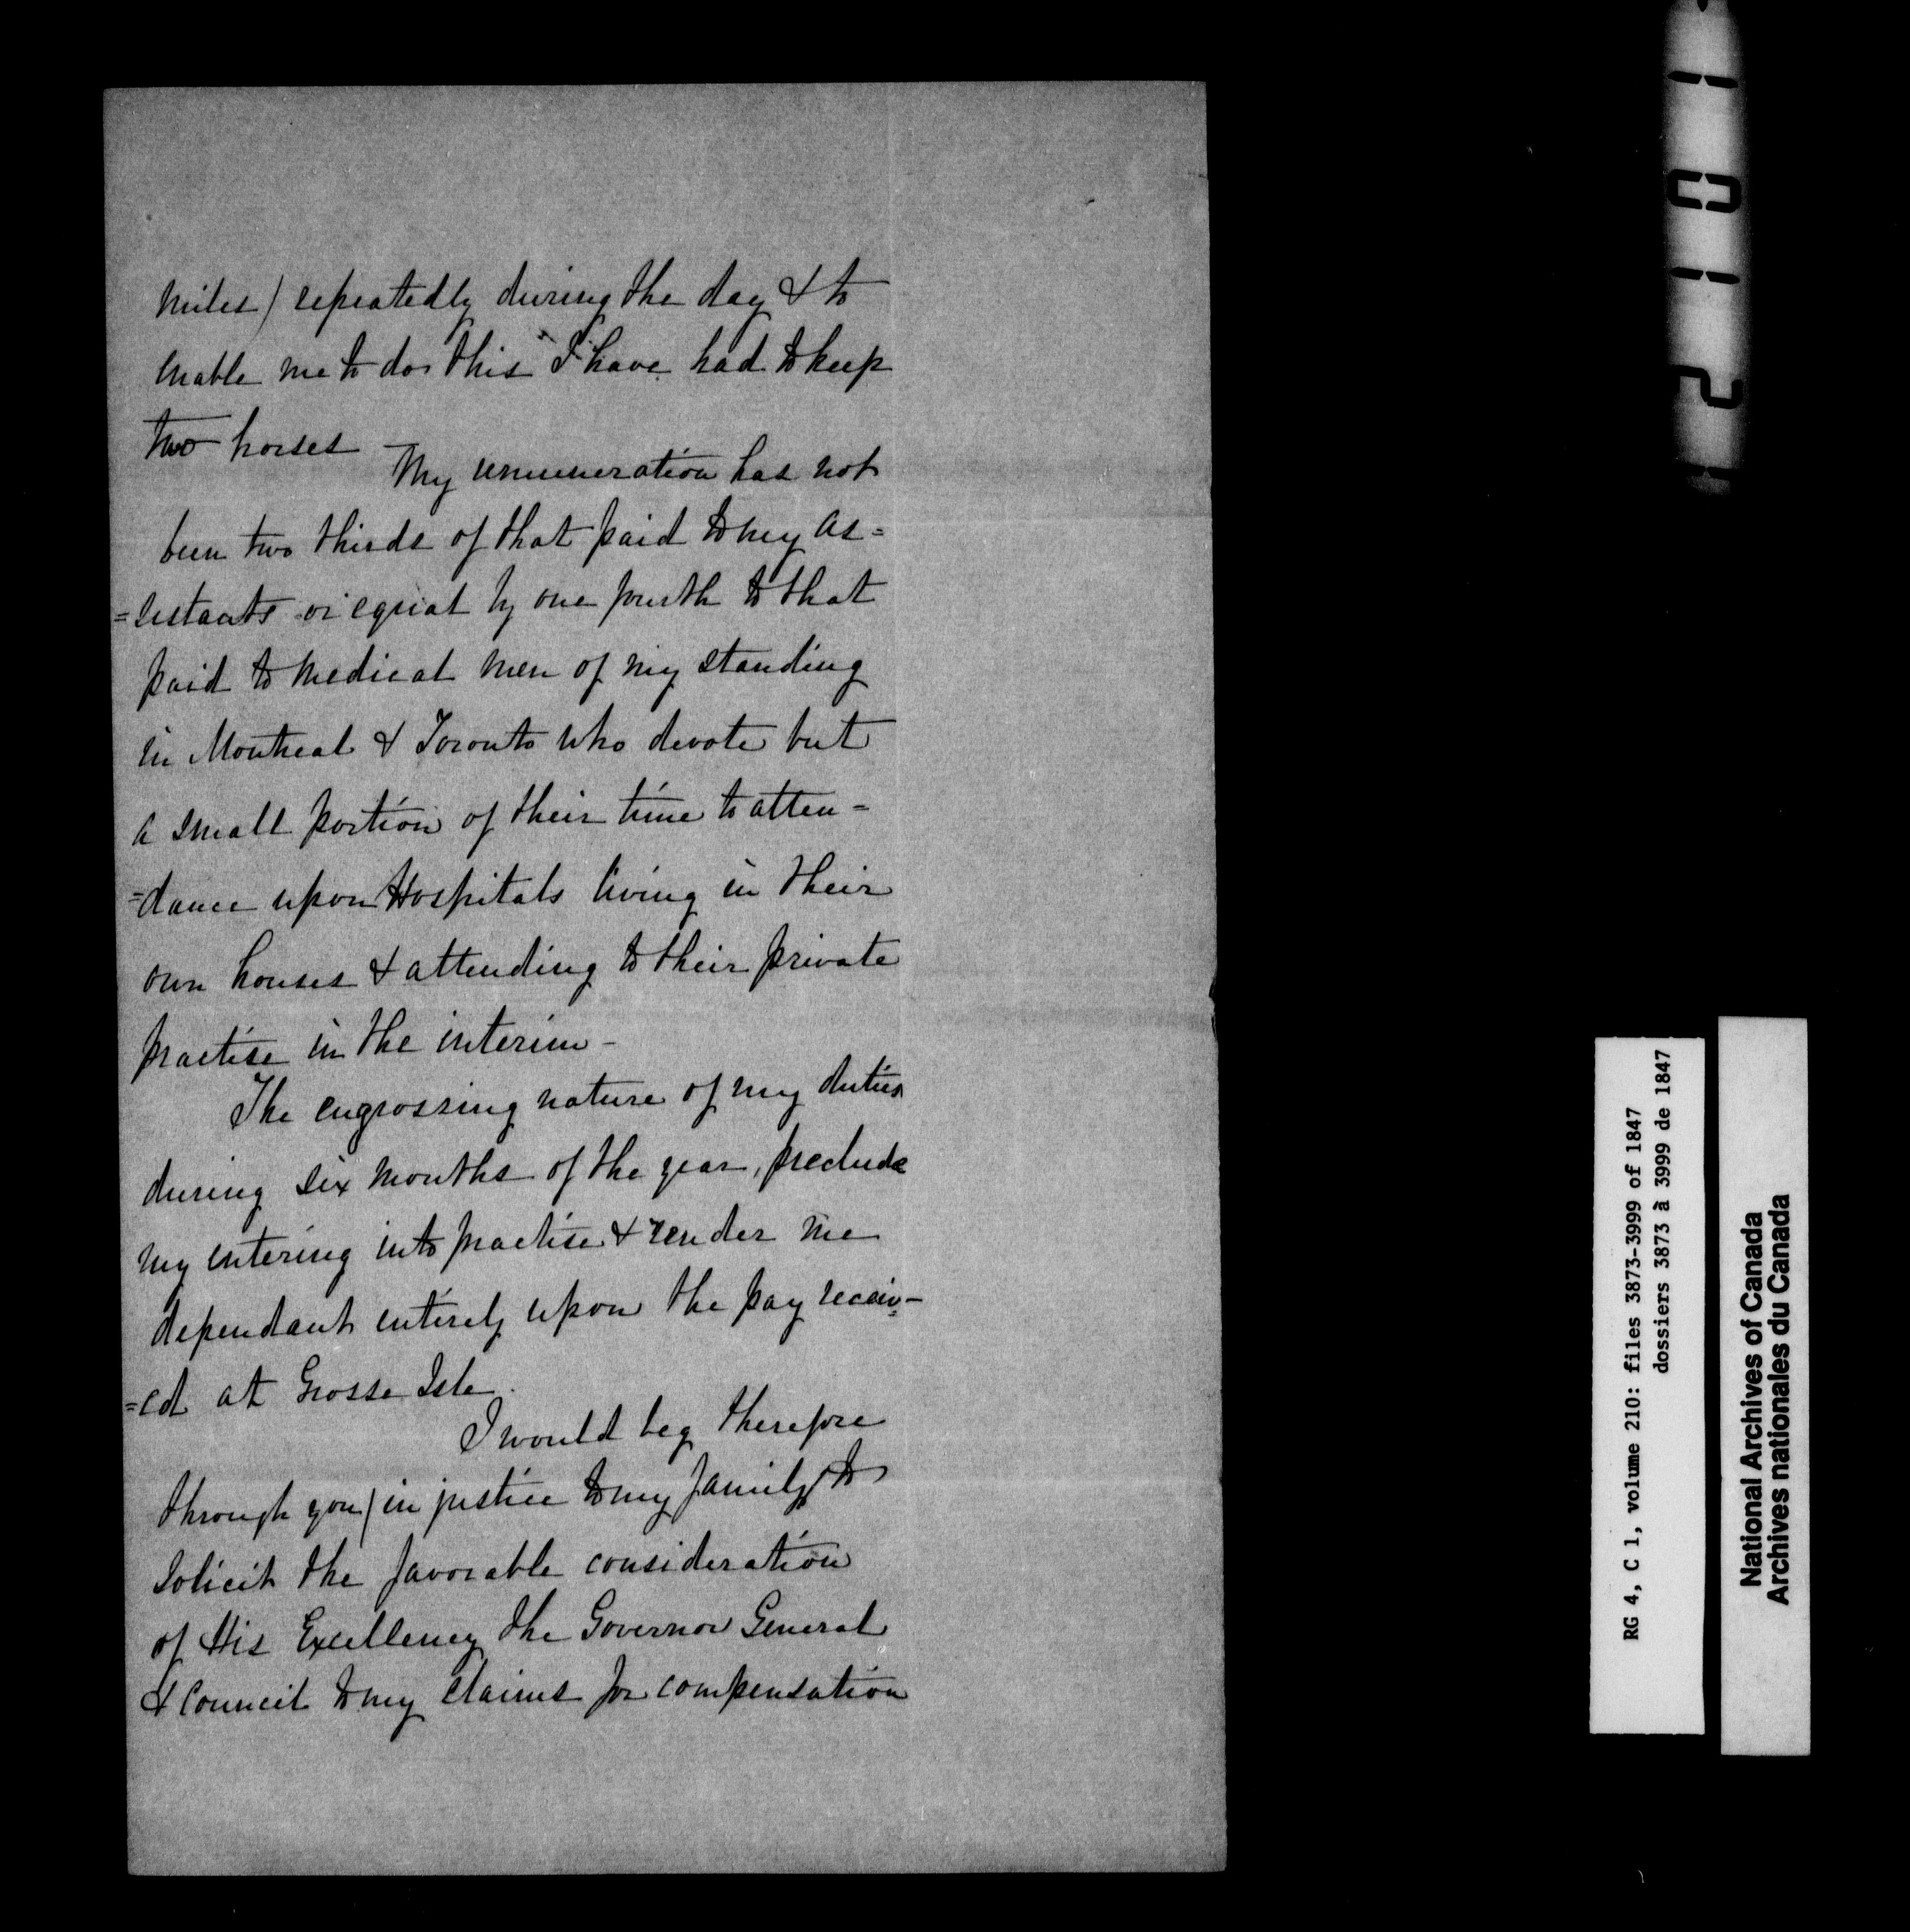 miles) repeatedly during the day & to
enable me to do this I have had to keep
two horses
My remuneration has not
been two thirds of that paid to my as=
=sistants or equal by one fourth to that
paid to medical men of my standing
in Montreal & Toronto who devote but
a small portion of their time to atten=
=dance upon Hospitals living in their
own houses & attending to their private
practise in the interim -
The engrossing nature of my duties
during six months of the year, preclude
my entering into practise & render me
dependant entirely upon the pay receiv-
=ed at Grosse Isle.
I would beg therefore
through you (in justice to my family) to
solicit the favorable consideration
of His Excellency the Governor General
& Council to my claims for compensation
1012
RG 4, C 1, volume 210: files 3873-3999 of 1847
dossiers 3873 à 3999 de 1847
National Archives of Canada
Archives nationales du Canada